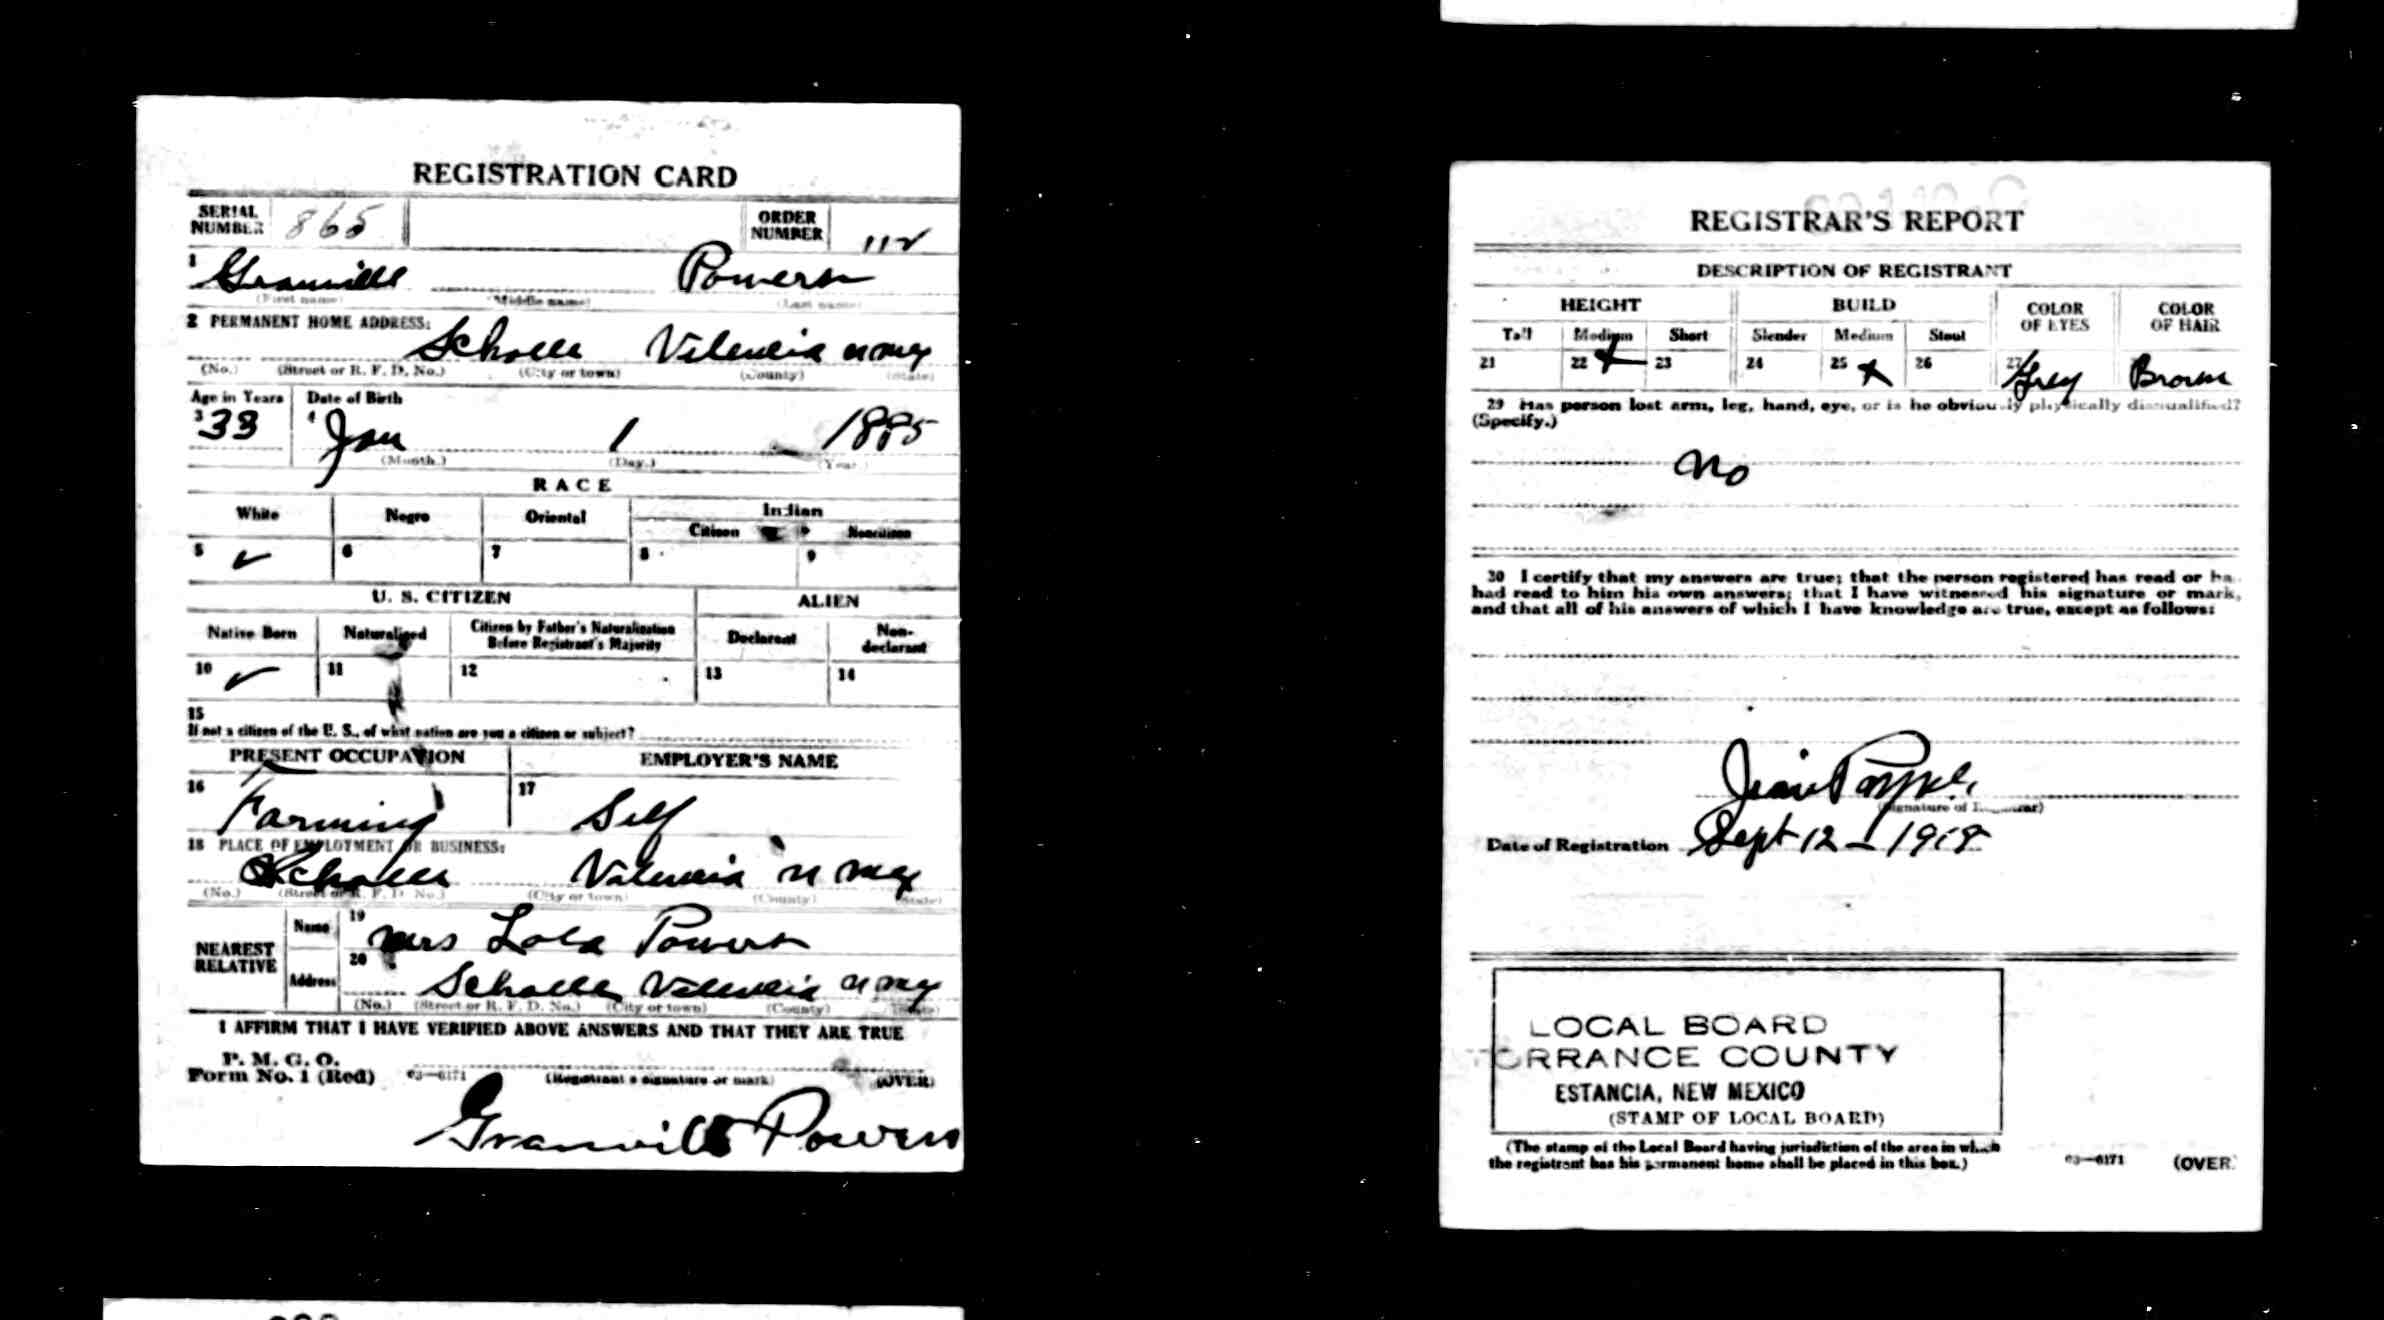 REGISTRATION CARD
SERIAL NUMBER 865 ORDER NUMBER 112
1 Granville Powers
(First name) (Middle name) (Last name)
2 PERMANENT HOME ADDRESS:
Scholle Valencia N Mex
(No.) (Street or R. F. D. No.) (City or town) (County) (State)
Age in Years Date of Birth
3 33 4 Jan 1 1885
(Month.) (Day.) (Year.)
RACE
White Negro Oriental Indian
Citizen Noncitizen
5 ✓ 6 7 8 9
U. S. CITIZEN ALIEN
Native Born Naturalized Citizen by Father's Naturalization Before Registrant's Majority Declarant Non-declarant
10 ✓ 11 12 13 14
15
If not a citizen of the U. S., of what nation are you a citizen or subject?
PRESENT OCCUPATION EMPLOYER'S NAME
16 Farming 17 Self
18 PLACE OF EMPLOYMENT OR BUSINESS:
Scholle Valencia N Mex
(No.) (Street or R. F. D. No.) (City or town) (County) (State)
NEAREST RELATIVE
Name 19 Mrs Lola Powers
Address 20 Scholle Valencia N Mex
(No.) (Street or R. F. D. No.) (City or town) (County) (State)
I AFFIRM THAT I HAVE VERIFIED ABOVE ANSWERS AND THAT THEY ARE TRUE
P. M. G. O.
Form No. 1 (Red) 03—6171 (Registrant's signature or mark) (OVER)
Granville Powers
REGISTRAR'S REPORT
DESCRIPTION OF REGISTRANT
HEIGHT BUILD COLOR OF EYES COLOR OF HAIR
Tall Medium Short Slender Medium Stout
21 22 x 23 24 25 x 26 27 Grey Brown
29 Has person lost arm, leg, hand, eye, or is he obviously physically disqualified?
(Specify.)
No
30 I certify that my answers are true; that the person registered has read or ha
had read to him his own answers; that I have witnessed his signature or mark,
and that all of his answers of which I have knowledge are true, except as follows:
(Signature of Registrar)
Date of Registration Sept 12 - 1918
LOCAL BOARD
ORRANCE COUNTY
ESTANCIA, NEW MEXICO
(STAMP OF LOCAL BOARD)
(The stamp of the Local Board having jurisdiction of the area in which
the registrant has his permanent home shall be placed in this box.)
03—6171 (OVER)